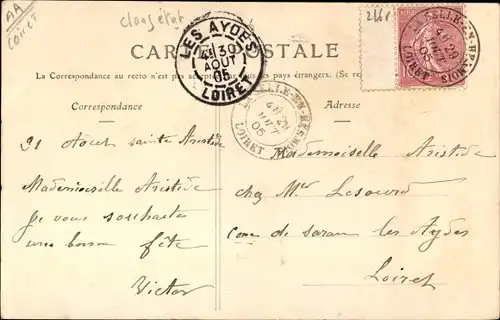 AA
LOIRET
2461
LES AYDES
4E 30
AOUT
05
LOIRET
CARTE POSTALE
La Correspondance au recto n'est pas acceptée par tous les pays étrangers. (Se re
Correspondance
Adresse
LOIRET
4E 29
AOUT
05
LOIRET
31 Aout sainte Aristide
Mademoiselle Aristide
je vous souhaite
une bonne fête
Victor
Mademoiselle Aristide
chez Mr Lesourd
Cone de saran les Aydes
Loiret